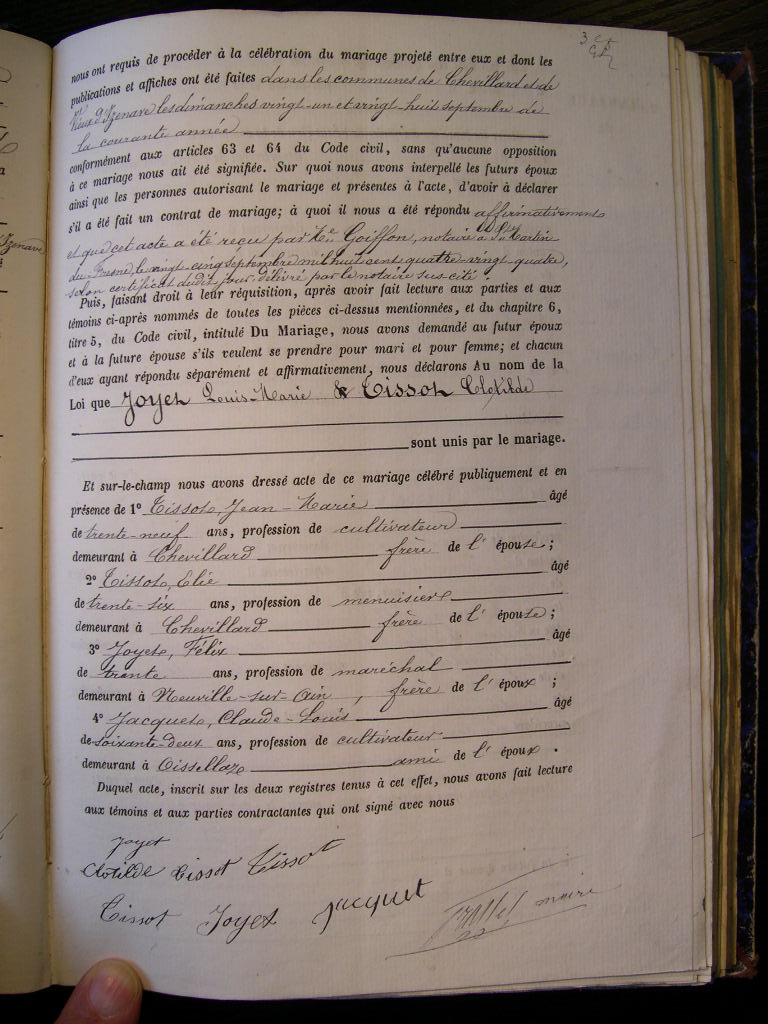 nous ont requis de procéder à la célébration du mariage projeté entre eux et dont les
publications et affiches ont été faites dans les communes de Chevillard et de
Vieux d'Izenave les dimanches vingt-un et vingt-huit septembre de
la courante année
conformément aux articles 63 et 64 du Code civil, sans qu'aucune opposition
à ce mariage nous ait été signifiée. Sur quoi nous avons interpellé les futurs époux
ainsi que les personnes autorisant le mariage et présentes à l'acte, d'avoir à déclarer
s'il a été fait un contrat de mariage; à quoi il nous a été répondu affirmativement
et que cet acte a été reçu par Me Goiffon, notaire à St Martin
du Fresne, le vingt-cinq septembre mil huit cent quatre-vingt-quatre,
selon certificat dudit jour, délivré par le notaire sus cité.
Puis, faisant droit à leur réquisition, après avoir fait lecture aux parties et aux
témoins ci-après nommés de toutes les pièces ci-dessus mentionnées, et du chapitre 6,
titre 5, du Code civil, intitulé Du Mariage, nous avons demandé au futur époux
et à la future épouse s'ils veulent se prendre pour mari et pour femme; et chacun
d'eux ayant répondu séparément et affirmativement, nous déclarons Au nom de la
Loi que Joyet Louis-Marie & Tissot Clotilde
sont unis par le mariage.
Et sur-le-champ nous avons dressé acte de ce mariage célébré publiquement et en
présence de 1° Tissot, Jean-Marie âgé
de trente-neuf ans, profession de cultivateur
demeurant à Chevillard frère de l'épouse;
2° Tissot, Elie âgé
de trente-six ans, profession de menuisier
demeurant à Chevillard frère de l'épouse;
3° Joyet, Félix âgé
de trente ans, profession de maréchal
demeurant à Neuville-sur-Ain, frère de l'époux;
4° Jacquet, Claude-Louis âgé
de soixante-deux ans, profession de cultivateur
demeurant à Oissellaz ami de l'époux.
Duquel acte, inscrit sur les deux registres tenus à cet effet, nous avons fait lecture
aux témoins et aux parties contractantes qui ont signé avec nous
Joyet
Clotilde Tissot Tissot
Tissot Joyet Jacquet maire